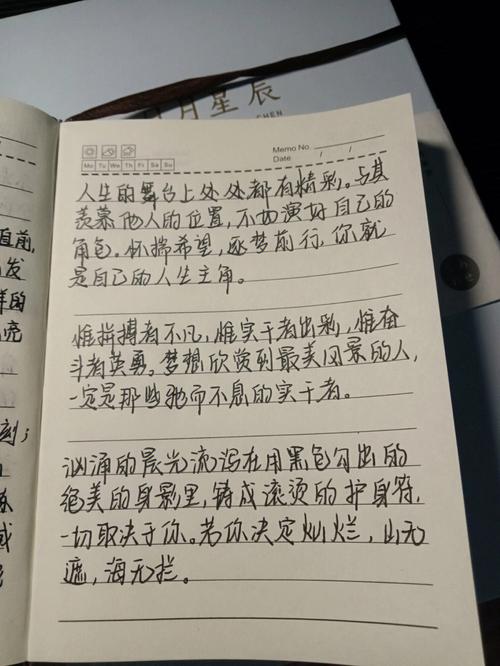 月星辰
CHEN
Memo No.
Mo Tu We Th Fr Sa Su
Date / /
人生的舞台上处处都有精彩。与其
羡慕他人的位置,不如演好自己的
角色。怀揣希望,逐梦前行,你就
是自己的人生主角。
惟拼搏者不凡,惟实干者出彩,惟奋
斗者英勇。梦想欣赏到最美风景的人,
一定是那些驰而不息的实干者。
汹涌的晨光流泻在用黑色勾出的
绝美的身影里,铸成滚烫的护身符,
一切取决于你。若你决定灿烂,山无
遮,海无拦。
直前,
发
样的
亮
刻;